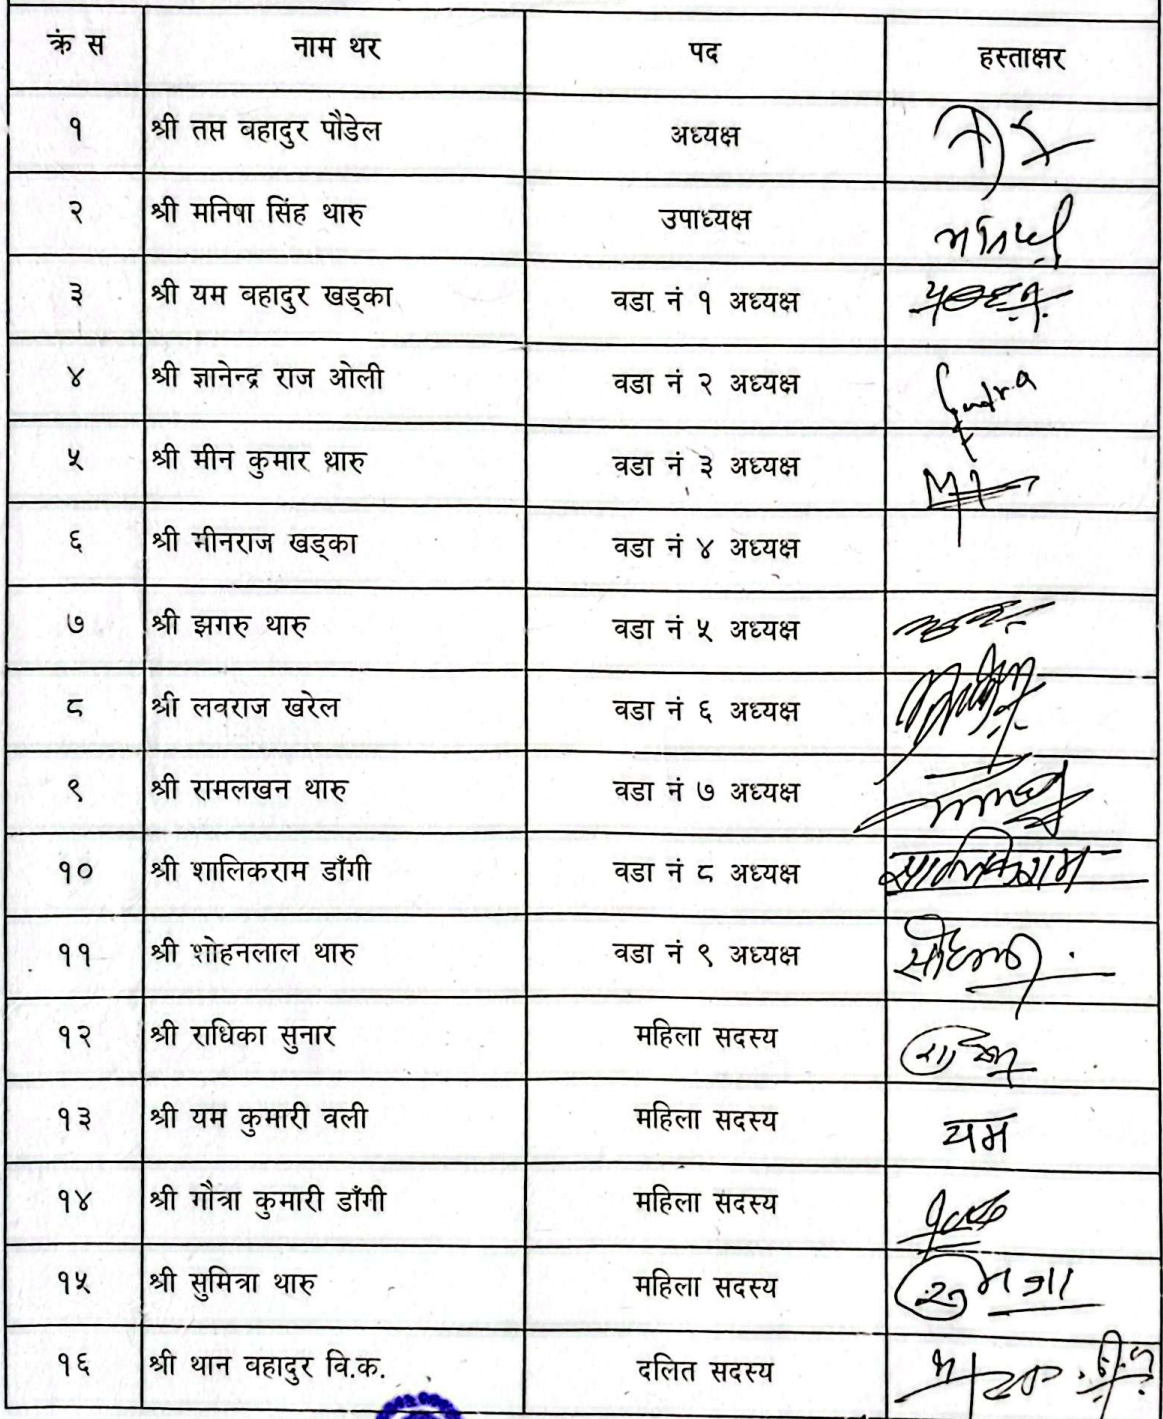 क्रं स नाम थर पद हस्ताक्षर
१ श्री तप्त वहादुर पौडेल अध्यक्ष
२ श्री मनिषा सिंह थारु उपाध्यक्ष
३ श्री यम वहादुर खड्का वडा नं १ अध्यक्ष
४ श्री ज्ञानेन्द्र राज ओली वडा नं २ अध्यक्ष
५ श्री मीन कुमार थारु वडा नं ३ अध्यक्ष
६ श्री मीनराज खड्का वडा नं ४ अध्यक्ष
७ श्री झगरु थारु वडा नं ५ अध्यक्ष
८ श्री लवराज खरेल वडा नं ६ अध्यक्ष
९ श्री रामलखन थारु वडा नं ७ अध्यक्ष
१० श्री शालिकराम डाँगी वडा नं ८ अध्यक्ष शालिकराम
११ श्री शोहनलाल थारु वडा नं ९ अध्यक्ष
१२ श्री राधिका सुनार महिला सदस्य
१३ श्री यम कुमारी वली महिला सदस्य यम
१४ श्री गौत्रा कुमारी डाँगी महिला सदस्य
१५ श्री सुमित्रा थारु महिला सदस्य
१६ श्री थान वहादुर वि.क. दलित सदस्य